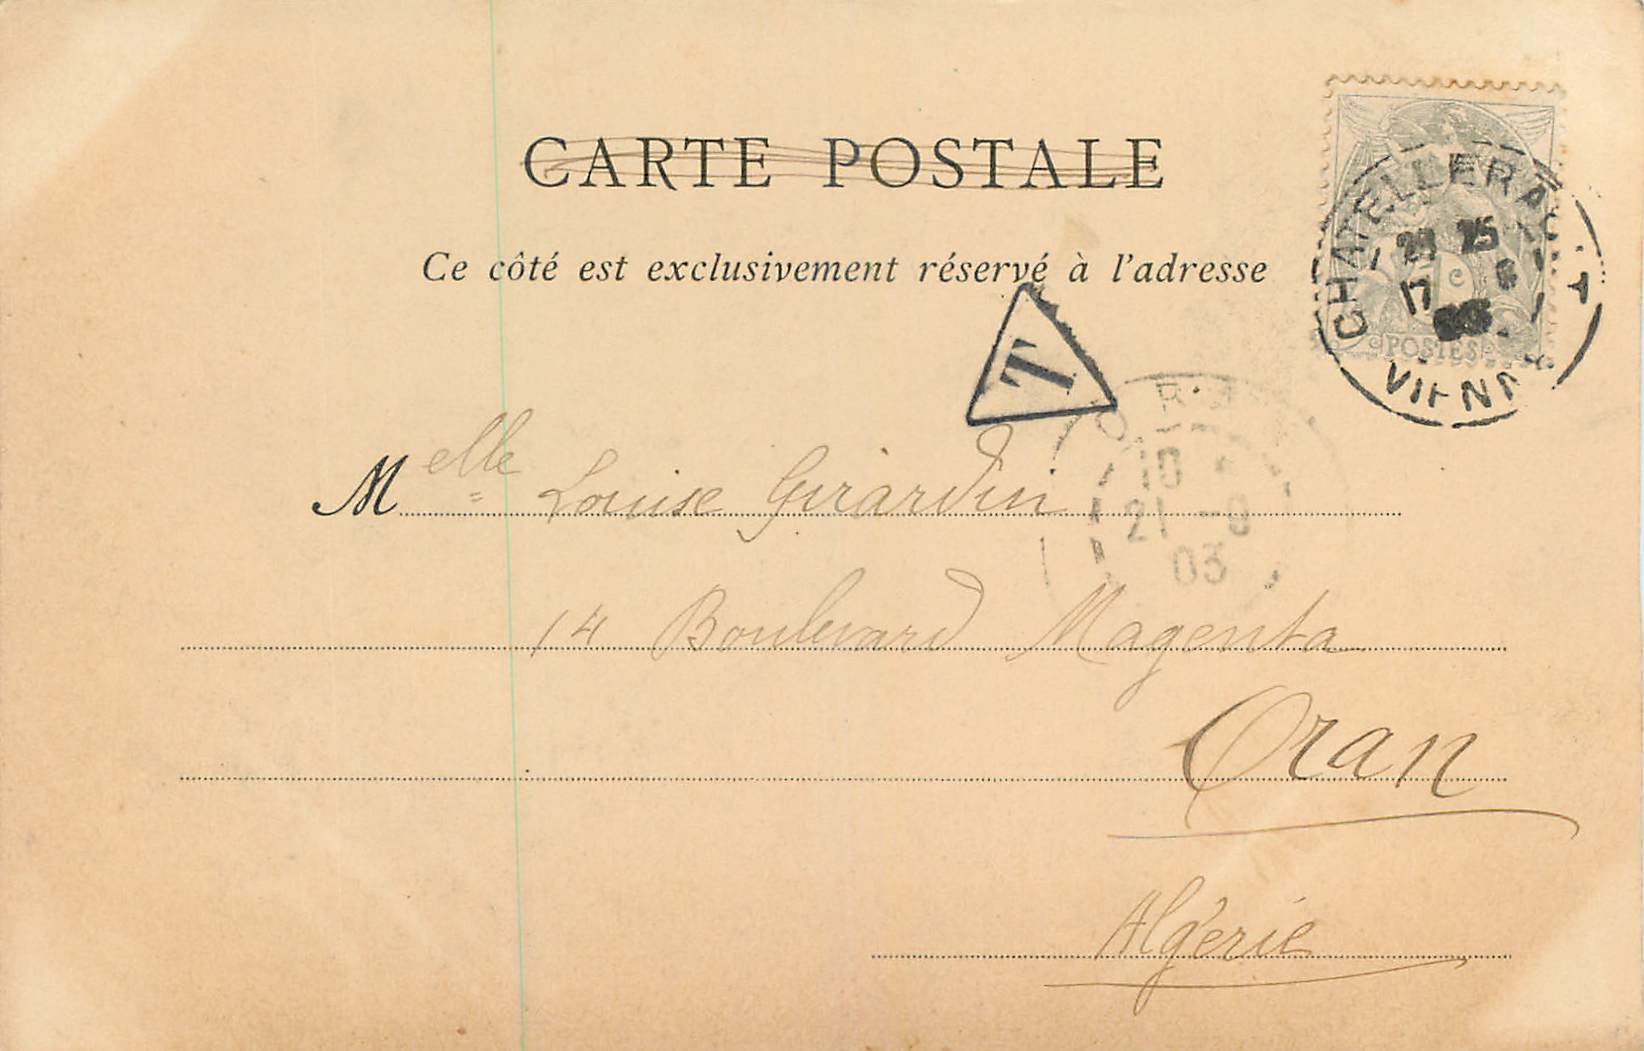 CARTE POSTALE
Ce côté est exclusivement réservé à l'adresse
CHATELLERAULT
25
17
VIENNE
1 c
POSTES
T
ORAN
10
21 -9
03
Melle Louise Girardin
14 Boulevard Magenta
Oran
Algérie